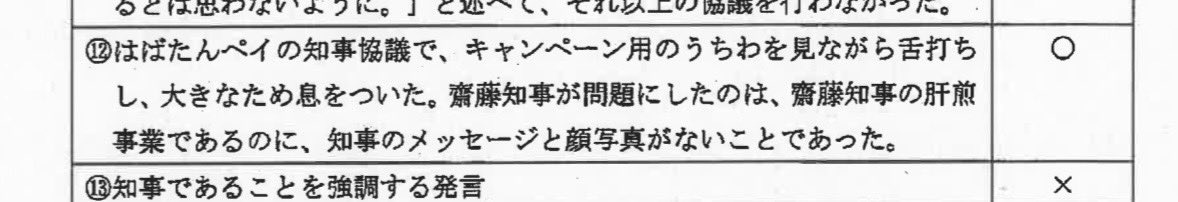 るとは思わないように。」と述べて、それ以上の協議を行わなかった。
⑫はばたんペイの知事協議で、キャンペーン用のうちわを見ながら舌打ち ○
し、大きなため息をついた。齋藤知事が問題にしたのは、齋藤知事の肝煎
事業であるのに、知事のメッセージと顔写真がないことであった。
⑬知事であることを強調する発言 ×